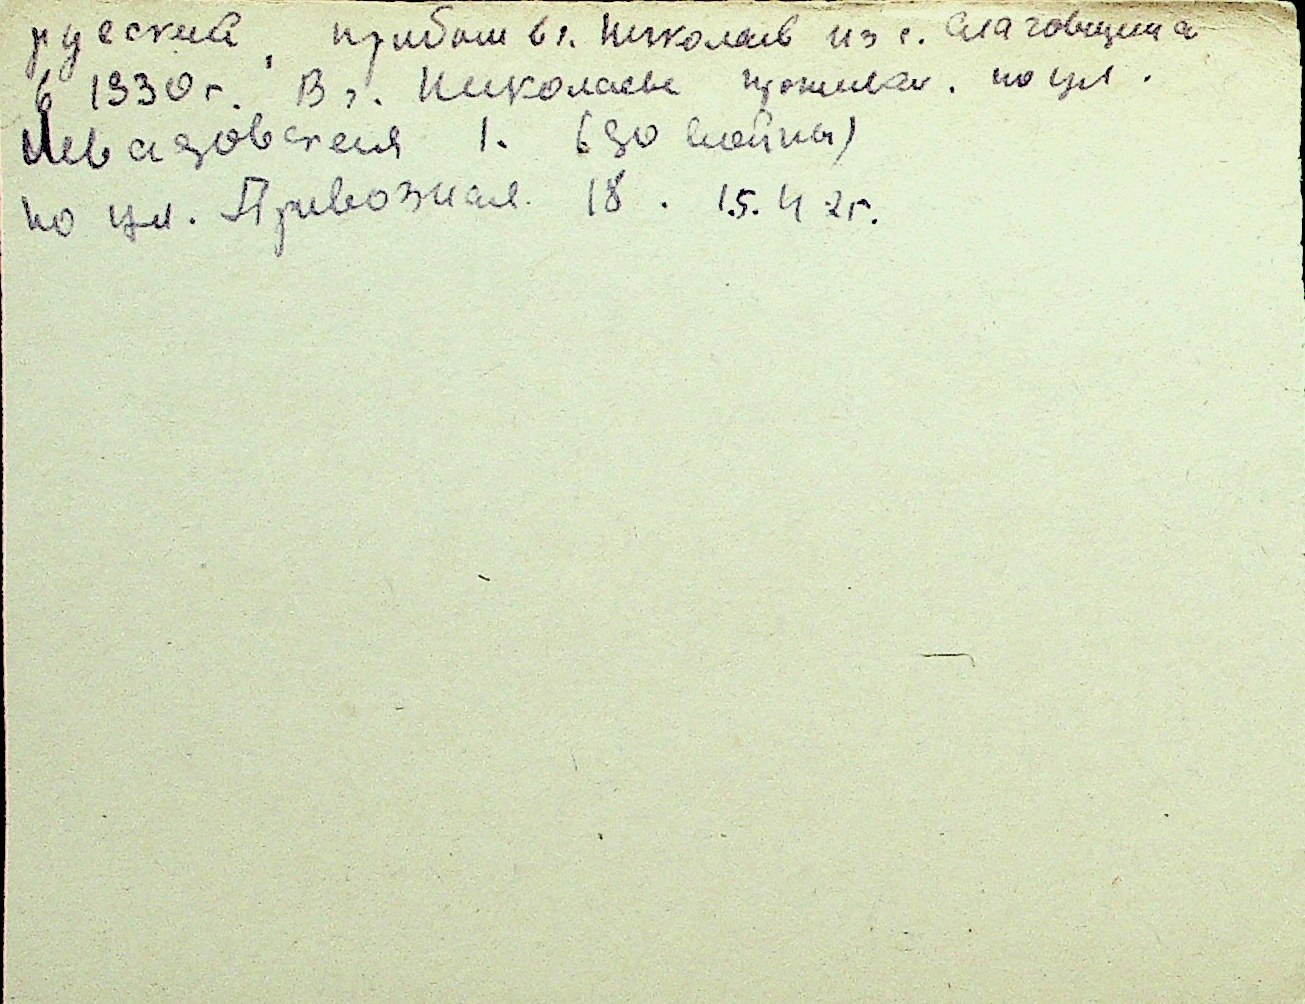 русский, прибыл в г. Николаев из с. Слаговщина
в 1930 г. В г. Николаеве проживал. по ул.
Левадовская 1. (до войны)
по ул. Привозная 18. 1.5.42г.